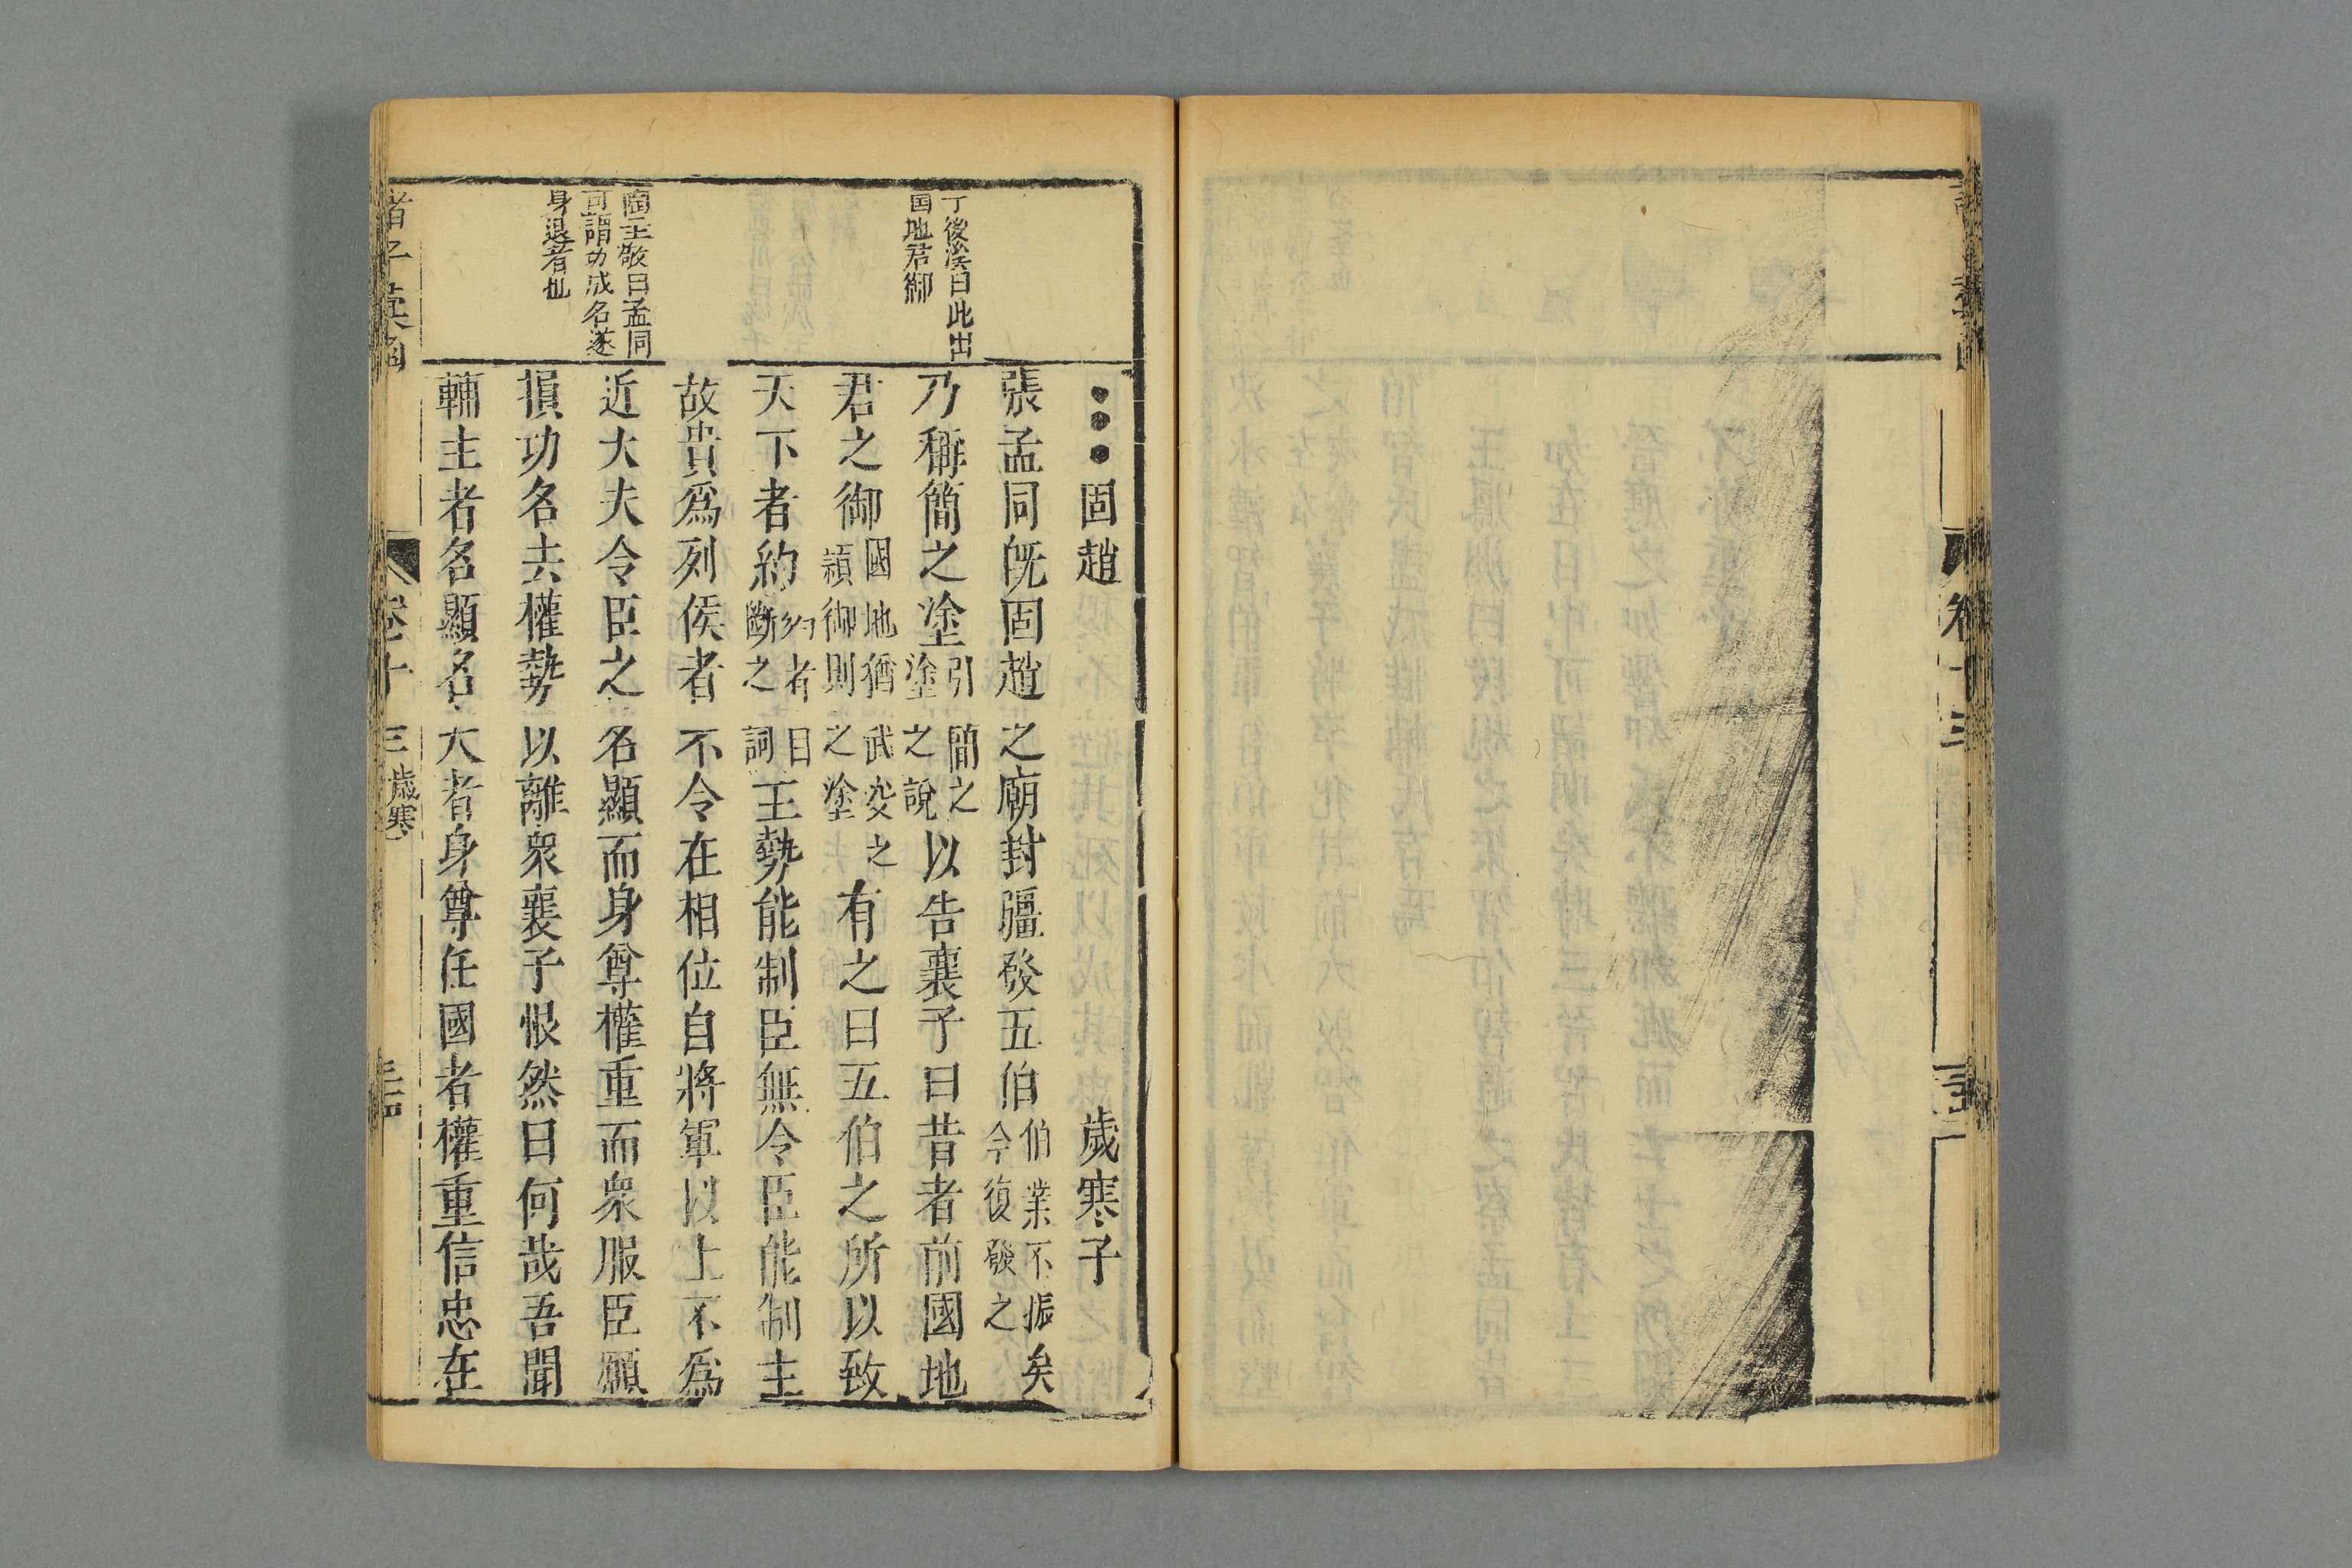 固趙　歲寒子
張孟同旣固趙之廟封疆發五伯伯業不振矣今復發之
乃稱簡之塗引簡之塗之說以告襄子曰昔者前國地
君之御國地猶武安之之御則之塗有之曰五伯之所以致
天下者約約者曰斷之詞王勢能制臣無令臣能制主
故貴爲列侯者不令在相位自將軍以上不爲
近大夫令臣之名顯而身尊權重而衆服臣願
損功名去權勢以離衆襄子恨然曰何哉吾聞
輔主者名顯名大者身尊任國者權重信忠在
丁後溪曰此出
国地君御
陶主敬曰孟同
可謂功成名遂
身退者也
卷十三
歲寒